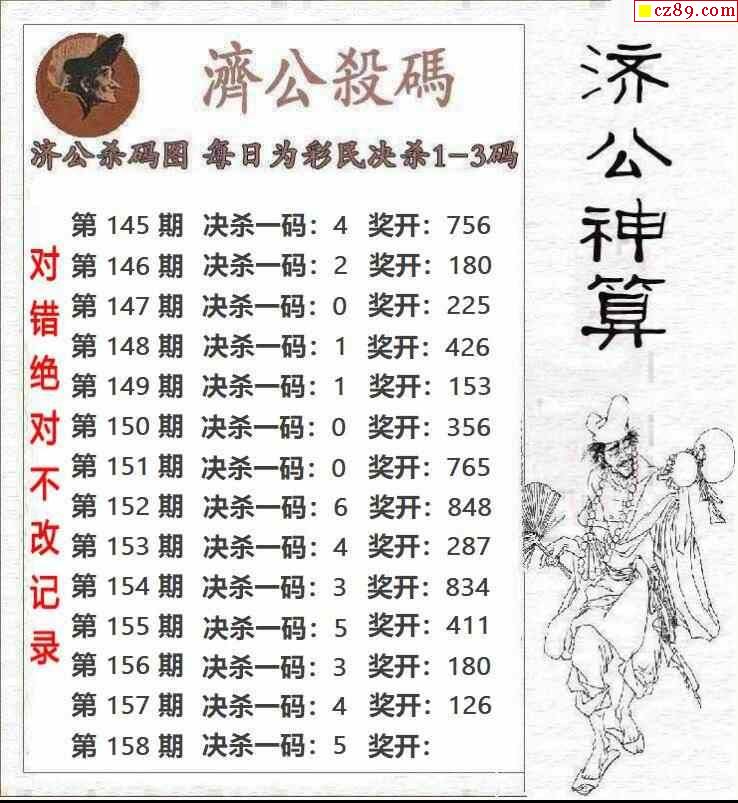 cz89.com
濟公殺碼
济公杀码图 每日为彩民决杀1-3码
第 145 期 决杀一码：4 奖开：756
第 146 期 决杀一码：2 奖开：180
第 147 期 决杀一码：0 奖开：225
第 148 期 决杀一码：1 奖开：426
第 149 期 决杀一码：1 奖开：153
第 150 期 决杀一码：0 奖开：356
第 151 期 决杀一码：0 奖开：765
第 152 期 决杀一码：6 奖开：848
第 153 期 决杀一码：4 奖开：287
第 154 期 决杀一码：3 奖开：834
第 155 期 决杀一码：5 奖开：411
第 156 期 决杀一码：3 奖开：180
第 157 期 决杀一码：4 奖开：126
第 158 期 决杀一码：5 奖开：
对错绝对不改记录
济公神算